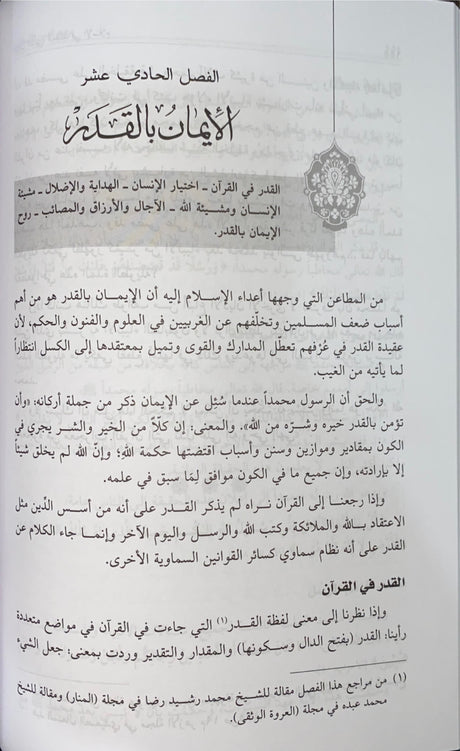 الفصل الحادي عشر
الإيمان بالقدر
القدر في القرآن ـ اختيار الإنسان ـ الهداية والإضلال ـ مشيئة
الإنسان ومشيئة الله ـ الآجال والأرزاق والمصائب ـ روح
الإيمان بالقدر.
من المطاعن التي وجهها أعداء الإسلام إليه أن الإيمان بالقدر هو من أهم
أسباب ضعف المسلمين وتخلّفهم عن الغربيين في العلوم والفنون والحكم، لأن
عقيدة القدر في عُرْفهم تعطّل المدارك والقوى وتميل بمعتقدها إلى الكسل انتظاراً
لما يأتيه من الغيب.
والحق أن الرسول محمداً عندما سُئِل عن الإيمان ذكر من جملة أركانه: «وأن
تؤمن بالقدر خيره وشرّه من الله». والمعنى: إن كلاًّ من الخير والشر يجري في
الكون بمقادير وموازين وسنن وأسباب اقتضتها حكمة الله؛ وإنّ الله لم يخلق شيئاً
إلا بإرادته، وإن جميع ما في الكون موافق لِمَا سبق في علمه.
وإذا رجعنا إلى القرآن نراه لم يذكر القدر على أنه من أسس الدِّين مثل
الاعتقاد بالله والملائكة وكتب الله والرسل واليوم الآخر وإنما جاء الكلام عن
القدر على أنه نظام سماوي كسائر القوانين السماوية الأخرى.
القدر في القرآن
وإذا نظرنا إلى معنى لفظة القدر(١) التي جاءت في القرآن في مواضع متعددة
رأينا: القدر (بفتح الدال وسكونها) والمقدار والتقدير وردت بمعنى: جعل الشيء
(١) من مراجع هذا الفصل مقالة للشيخ محمد رشيد رضا في مجلة (المنار) ومقالة للشيخ
محمد عبده في مجلة (العروة الوثقى).